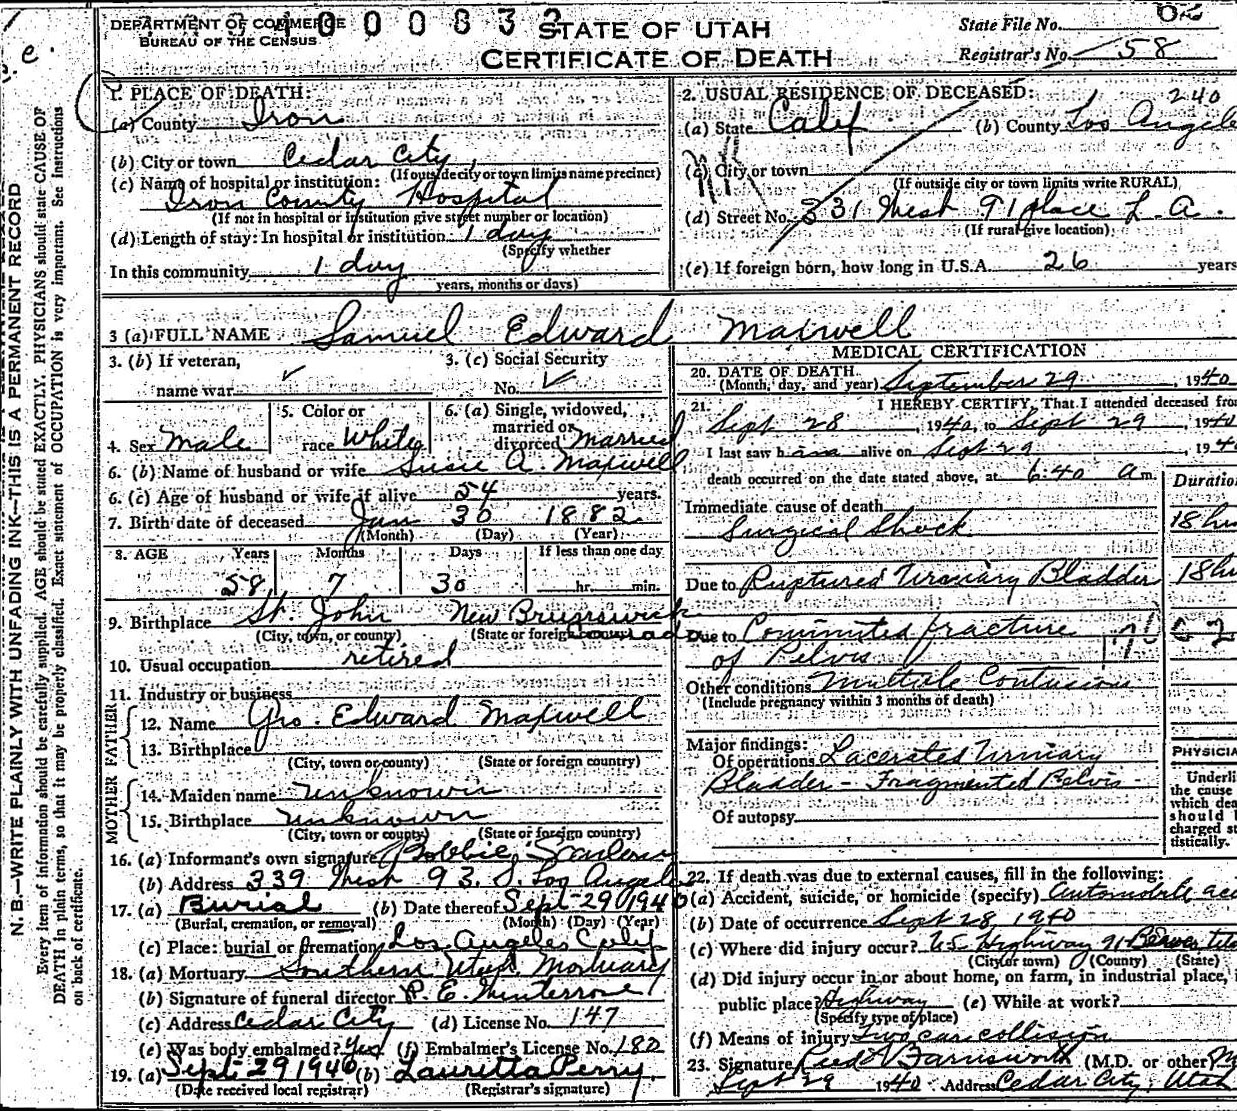 DEPARTMENT OF COMMERCE
BUREAU OF THE CENSUS
STATE OF UTAH
CERTIFICATE OF DEATH
State File No.
Registrar's No. 58
N. B.—WRITE PLAINLY WITH UNFADING INK—THIS IS A PERMANENT RECORD
Every item of information should be carefully supplied. AGE should be stated EXACTLY. PHYSICIANS should state CAUSE OF
DEATH in plain terms, so that it may be properly classified. Exact statement of OCCUPATION is very important. See Instructions
on back of certificate.
1. PLACE OF DEATH:
(a) County Iron
(b) City or town Cedar City
(If outside city or town limits name precinct)
(c) Name of hospital or institution:
Iron County Hospital
(If not in hospital or institution give street number or location)
(d) Length of stay: In hospital or institution 1 day
(Specify whether
In this community 1 day
years, months or days)
2. USUAL RESIDENCE OF DECEASED:
240
(a) State Calif (b) County Los Angele
(c) City or town
(If outside city or town limits write RURAL)
(d) Street No. 331 West 91 place L. A.
(If rural give location)
(e) If foreign born, how long in U.S.A. 26 years
3 (a) FULL NAME Samuel Edward Maxwell
3. (b) If veteran,
name war
3. (c) Social Security
No.
4. Sex Male
5. Color or
race White
6. (a) Single, widowed,
married or
divorced Married
6. (b) Name of husband or wife Susie A. Maxwell
6. (c) Age of husband or wife if alive 54 years.
7. Birth date of deceased Jan 30 1882
(Month) (Day) (Year)
8. AGE Years Months Days If less than one day
58 7 30 hr. min.
9. Birthplace St. John New Brunswick
(City, town, or county) (State or foreign country)
10. Usual occupation retired
11. Industry or business
FATHER
12. Name Geo. Edward Maxwell
13. Birthplace
(City, town or county) (State or foreign country)
MOTHER
14. Maiden name unknown
15. Birthplace unknown
(City, town or county) (State or foreign country)
16. (a) Informant's own signature Bobbie
(b) Address 339 West 93. S. Los Angeles
17. (a) Burial (b) Date thereof Sept 29 1940
(Burial, cremation, or removal) (Month) (Day) (Year)
(c) Place: burial or cremation Los Angeles Calif
18. (a) Mortuary Southern Utah Mortuary
(b) Signature of funeral director P. E. Winterrose
(c) Address Cedar City (d) License No. 147
(e) Was body embalmed? Yes (f) Embalmer's License No. 180
19. (a) Sept 29 1940 (b) Lauretta Perry
(Date received local registrar) (Registrar's signature)
MEDICAL CERTIFICATION
20. DATE OF DEATH
(Month, day, and year) September 29, 1940
21. I HEREBY CERTIFY, That I attended deceased from
Sept 28, 1940, to Sept 29, 1940
I last saw him alive on Sept 29, 194
death occurred on the date stated above, at 6:40 a m.
Duration
Immediate cause of death
Surgical Shock 18 hrs
Due to Ruptured Urinary Bladder 18 hr
Due to Cominuted fracture
of Pelvis
Other conditions Multiple Contusions
(Include pregnancy within 3 months of death)
Major findings:
Of operations Lacerated Urinary
Bladder - Fragmented Pelvis -
Of autopsy
PHYSICIA
Underli
the cause
which dea
should b
charged st
tistically.
22. If death was due to external causes, fill in the following:
(a) Accident, suicide, or homicide (specify) Automobile acc
(b) Date of occurrence Sept 28, 1940
(c) Where did injury occur? U.S. Highway 91 Beaver Utah
(City or town) (County) (State)
(d) Did injury occur in or about home, on farm, in industrial place, i
public place? Highway (e) While at work?
(Specify type of place)
(f) Means of injury Two car collision
23. Signature Reed Farnsworth (M.D. or other) M
Sept 29 1940 Address Cedar City, Utah